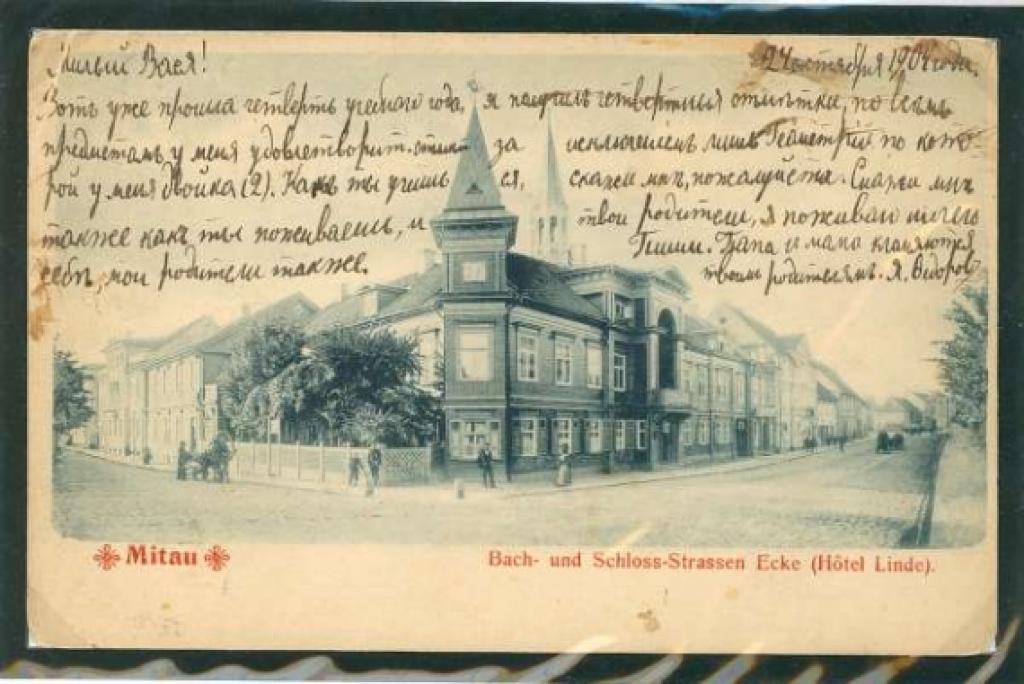 Милый Вася! 24 октября 1904 года.
Вотъ уже прошла четверть учебнаго года, я получилъ четвертныя отмѣтки, по всѣмъ
предметамъ у меня удовлетворит. за исключеніемъ лишь Геометріи по кото-
рой у меня двойка (2). Какъ ты учишься, скажи мнѣ, пожалуйста. Скажи мнѣ
также какъ ты поживаешь, и твои родители, я поживаю ничего
себѣ, мои родители также. Пиши. Папа и мама кланяются
твоимъ родителямъ. Я. Ѳедоровъ
Mitau
Bach- und Schloss-Strassen Ecke (Hôtel Linde).